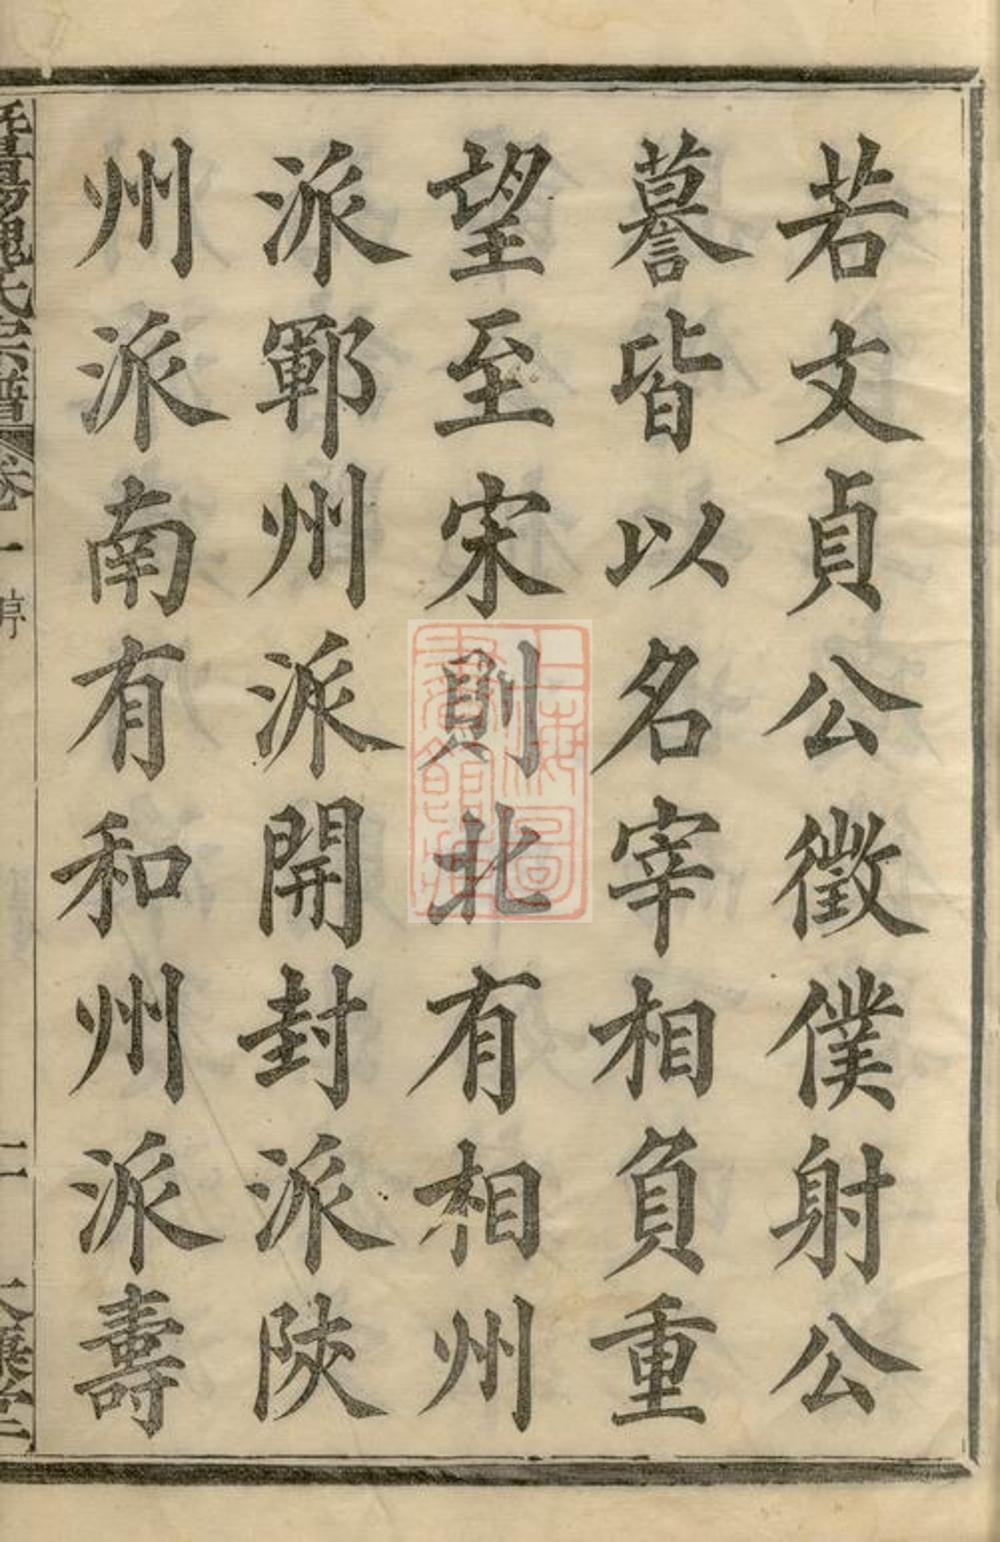 若文貞公徵僕射公
謩皆以名宰相負重
望至宋則北有相州
派鄆州派開封派陝
州派南有和州派壽
魏氏宗譜 卷一 序 二
上海圖書館藏